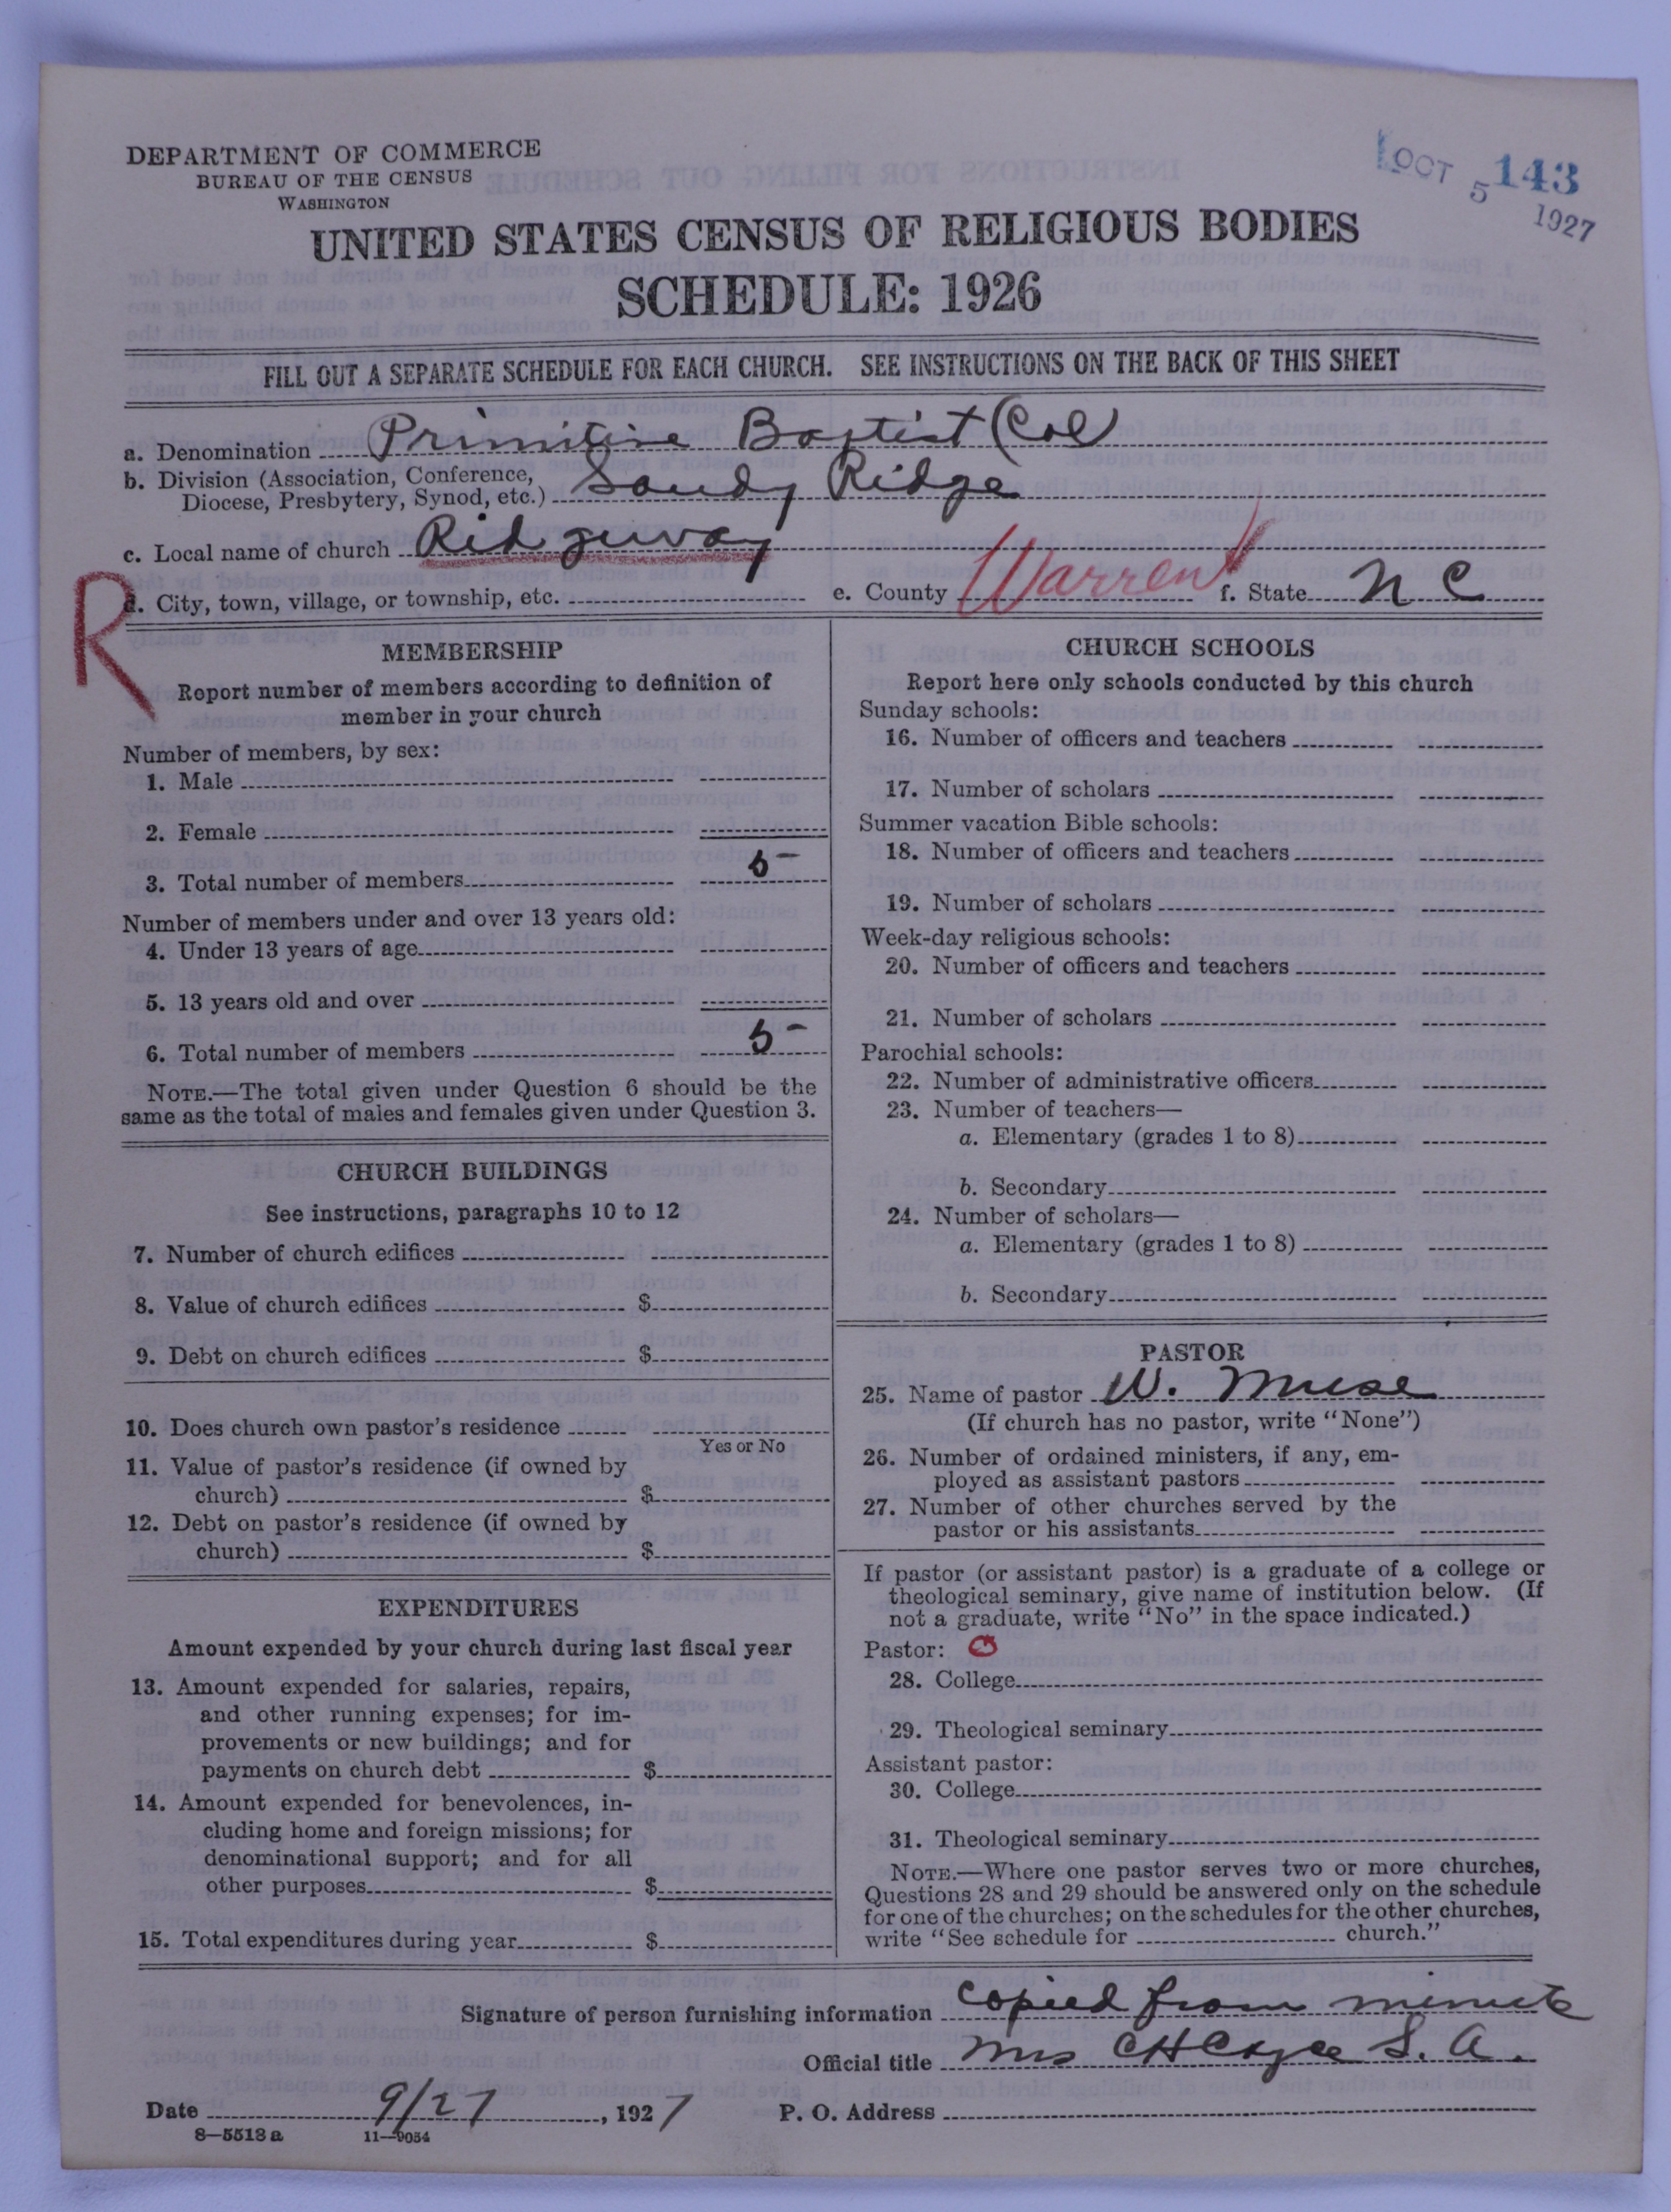 DEPARTMENT OF COMMERCE
BUREAU OF THE CENSUS
WASHINGTON
OCT 5 1927
143
UNITED STATES CENSUS OF RELIGIOUS BODIES
SCHEDULE: 1926
FILL OUT A SEPARATE SCHEDULE FOR EACH CHURCH. SEE INSTRUCTIONS ON THE BACK OF THIS SHEET
a. Denomination Primitive Baptist (Col
b. Division (Association, Conference,
Diocese, Presbytery, Synod, etc.) Sandy Ridge
c. Local name of church Ridgeway
R
d. City, town, village, or township, etc. e. County Warren f. State N C
MEMBERSHIP
Report number of members according to definition of
member in your church
Number of members, by sex:
1. Male
2. Female
3. Total number of members 5
Number of members under and over 13 years old:
4. Under 13 years of age
5. 13 years old and over
6. Total number of members 5
NOTE.—The total given under Question 6 should be the
same as the total of males and females given under Question 3.
CHURCH BUILDINGS
See instructions, paragraphs 10 to 12
7. Number of church edifices
8. Value of church edifices $
9. Debt on church edifices $
10. Does church own pastor's residence
Yes or No
11. Value of pastor's residence (if owned by
church) $
12. Debt on pastor's residence (if owned by
church) $
EXPENDITURES
Amount expended by your church during last fiscal year
13. Amount expended for salaries, repairs,
and other running expenses; for im-
provements or new buildings; and for
payments on church debt $
14. Amount expended for benevolences, in-
cluding home and foreign missions; for
denominational support; and for all
other purposes $
15. Total expenditures during year $
CHURCH SCHOOLS
Report here only schools conducted by this church
Sunday schools:
16. Number of officers and teachers
17. Number of scholars
Summer vacation Bible schools:
18. Number of officers and teachers
19. Number of scholars
Week-day religious schools:
20. Number of officers and teachers
21. Number of scholars
Parochial schools:
22. Number of administrative officers
23. Number of teachers—
a. Elementary (grades 1 to 8)
b. Secondary
24. Number of scholars—
a. Elementary (grades 1 to 8)
b. Secondary
PASTOR
25. Name of pastor W. Muse
(If church has no pastor, write "None")
26. Number of ordained ministers, if any, em-
ployed as assistant pastors
27. Number of other churches served by the
pastor or his assistants
If pastor (or assistant pastor) is a graduate of a college or
theological seminary, give name of institution below. (If
not a graduate, write "No" in the space indicated.)
Pastor:
28. College
29. Theological seminary
Assistant pastor:
30. College
31. Theological seminary
NOTE.—Where one pastor serves two or more churches,
Questions 28 and 29 should be answered only on the schedule
for one of the churches; on the schedules for the other churches,
write "See schedule for church."
Signature of person furnishing information copied from minute
Official title Mrs C H Cayce S. A.
Date 9/27, 1927 P. O. Address
8—5513a 11—9054